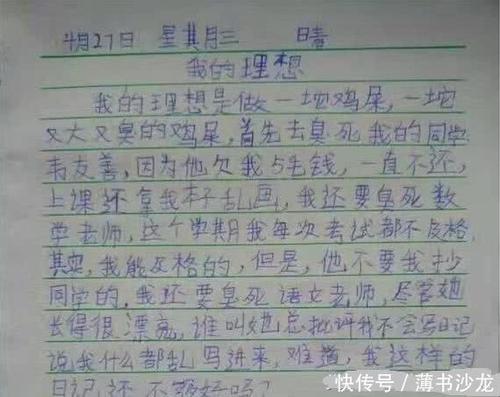 4月27日 星其月三 晴
我的理想
我的理想是做一坨鸡屎,一坨
又大又臭的鸡屎,首先去臭死我的同学
韦友善,因为他欠我5毛钱,一直不还,
上课还拿我本子乱画,我还要臭死数
学老师,这个学期我每次考试都不及格,
其实,我能及格的,但是,他不要我抄
同学的,我还要臭死语文老师,尽管她
长得很漂亮,谁叫她总批评我不会写日记
说我什么都乱写进来,难道,我这样的
日记还不够好吗?
快传号/薄书沙龙